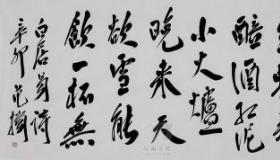 醅酒红泥
小火爐
晚来天
欲雪能
飲一杯無
白居易詩
辛卯